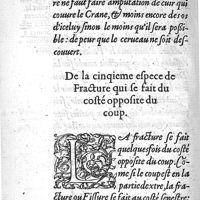 re ne faut faire amputation de cuir qui
couure le Crane, & moins encore des os
d'iceluy sinon le moins qu'il sera possi-
ble: de peur que le cerueau ne soit des-
couuert.
De la cinqieme espece de
Fracture qui se fait du
costé opposite du
coup.
LA fracture se fait
quelquesfois du costé
opposite du coup. Cõ-
me si le coup est en la
partie dextre, la fra-
cture ou Fissure se fait au costé senestre: